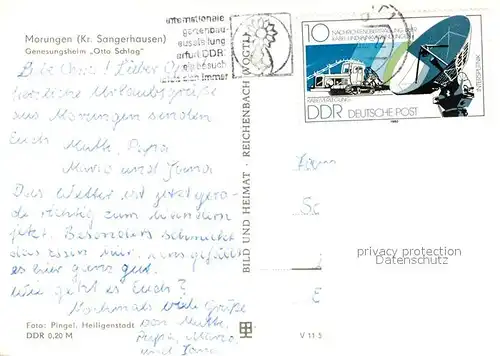 Morungen (Kr. Sangerhausen)
Genesungsheim „Otto Schlag"
internationale
gartenbau-
ausstellung
erfurt DDR
ein besuch
lohnt sich immer
10
NACHRICHTENÜBERTRAGUNG ÜBER
KABEL- UND
KABELVERLEGUNG
DDR DEUTSCHE POST
INTERSPUTNIK
Liebe Oma! Lieber
herzliche Urlaubsgrüße
aus Morungen senden
Euch Mutti, Papa
Mario und Jana
Das Wetter ist jetzt gera-
de richtig zum wandern
jetzt. Besonders schmeckt
das Essen hier. uns gefällt
es hier ganz gut.
Wie geht es Euch?
Nochmals viele Grüße
von Mutti,
Papa, Mario
und Jana
BILD UND HEIMAT · REICHENBACH (VOGTL)
privacy protection
Datenschutz
Foto: Pingel, Heiligenstadt
DDR 0,20 M
V 11 5